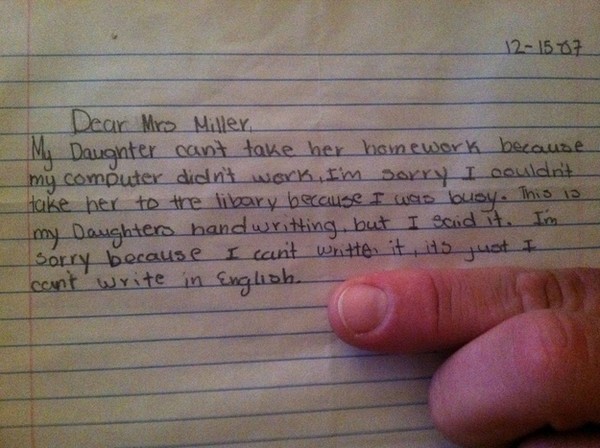 12-15-07
Dear Mrs Miller,
My Daughter can't take her homework because
my computer didn't work, I'm sorry I couldn't
take her to the libary because I was busy. This is
my Daughters handwritting, but I said it. Im
sorry because I can't writte it, its just I
can't write in English.